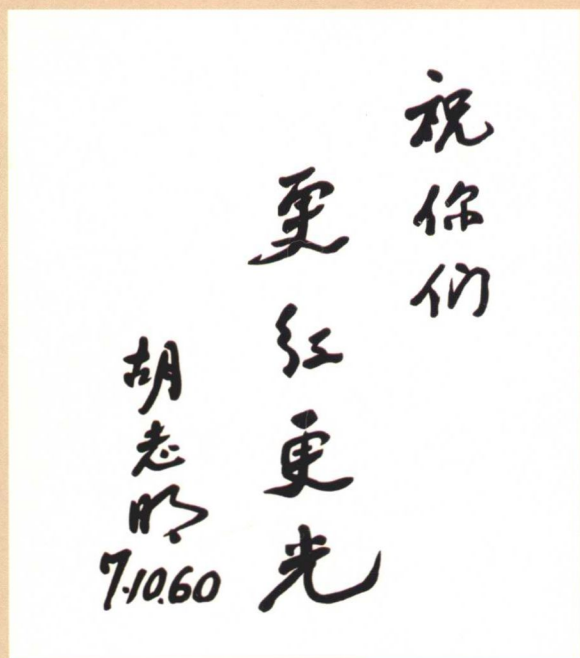 祝你们
更红更光
胡志明
7.10.60